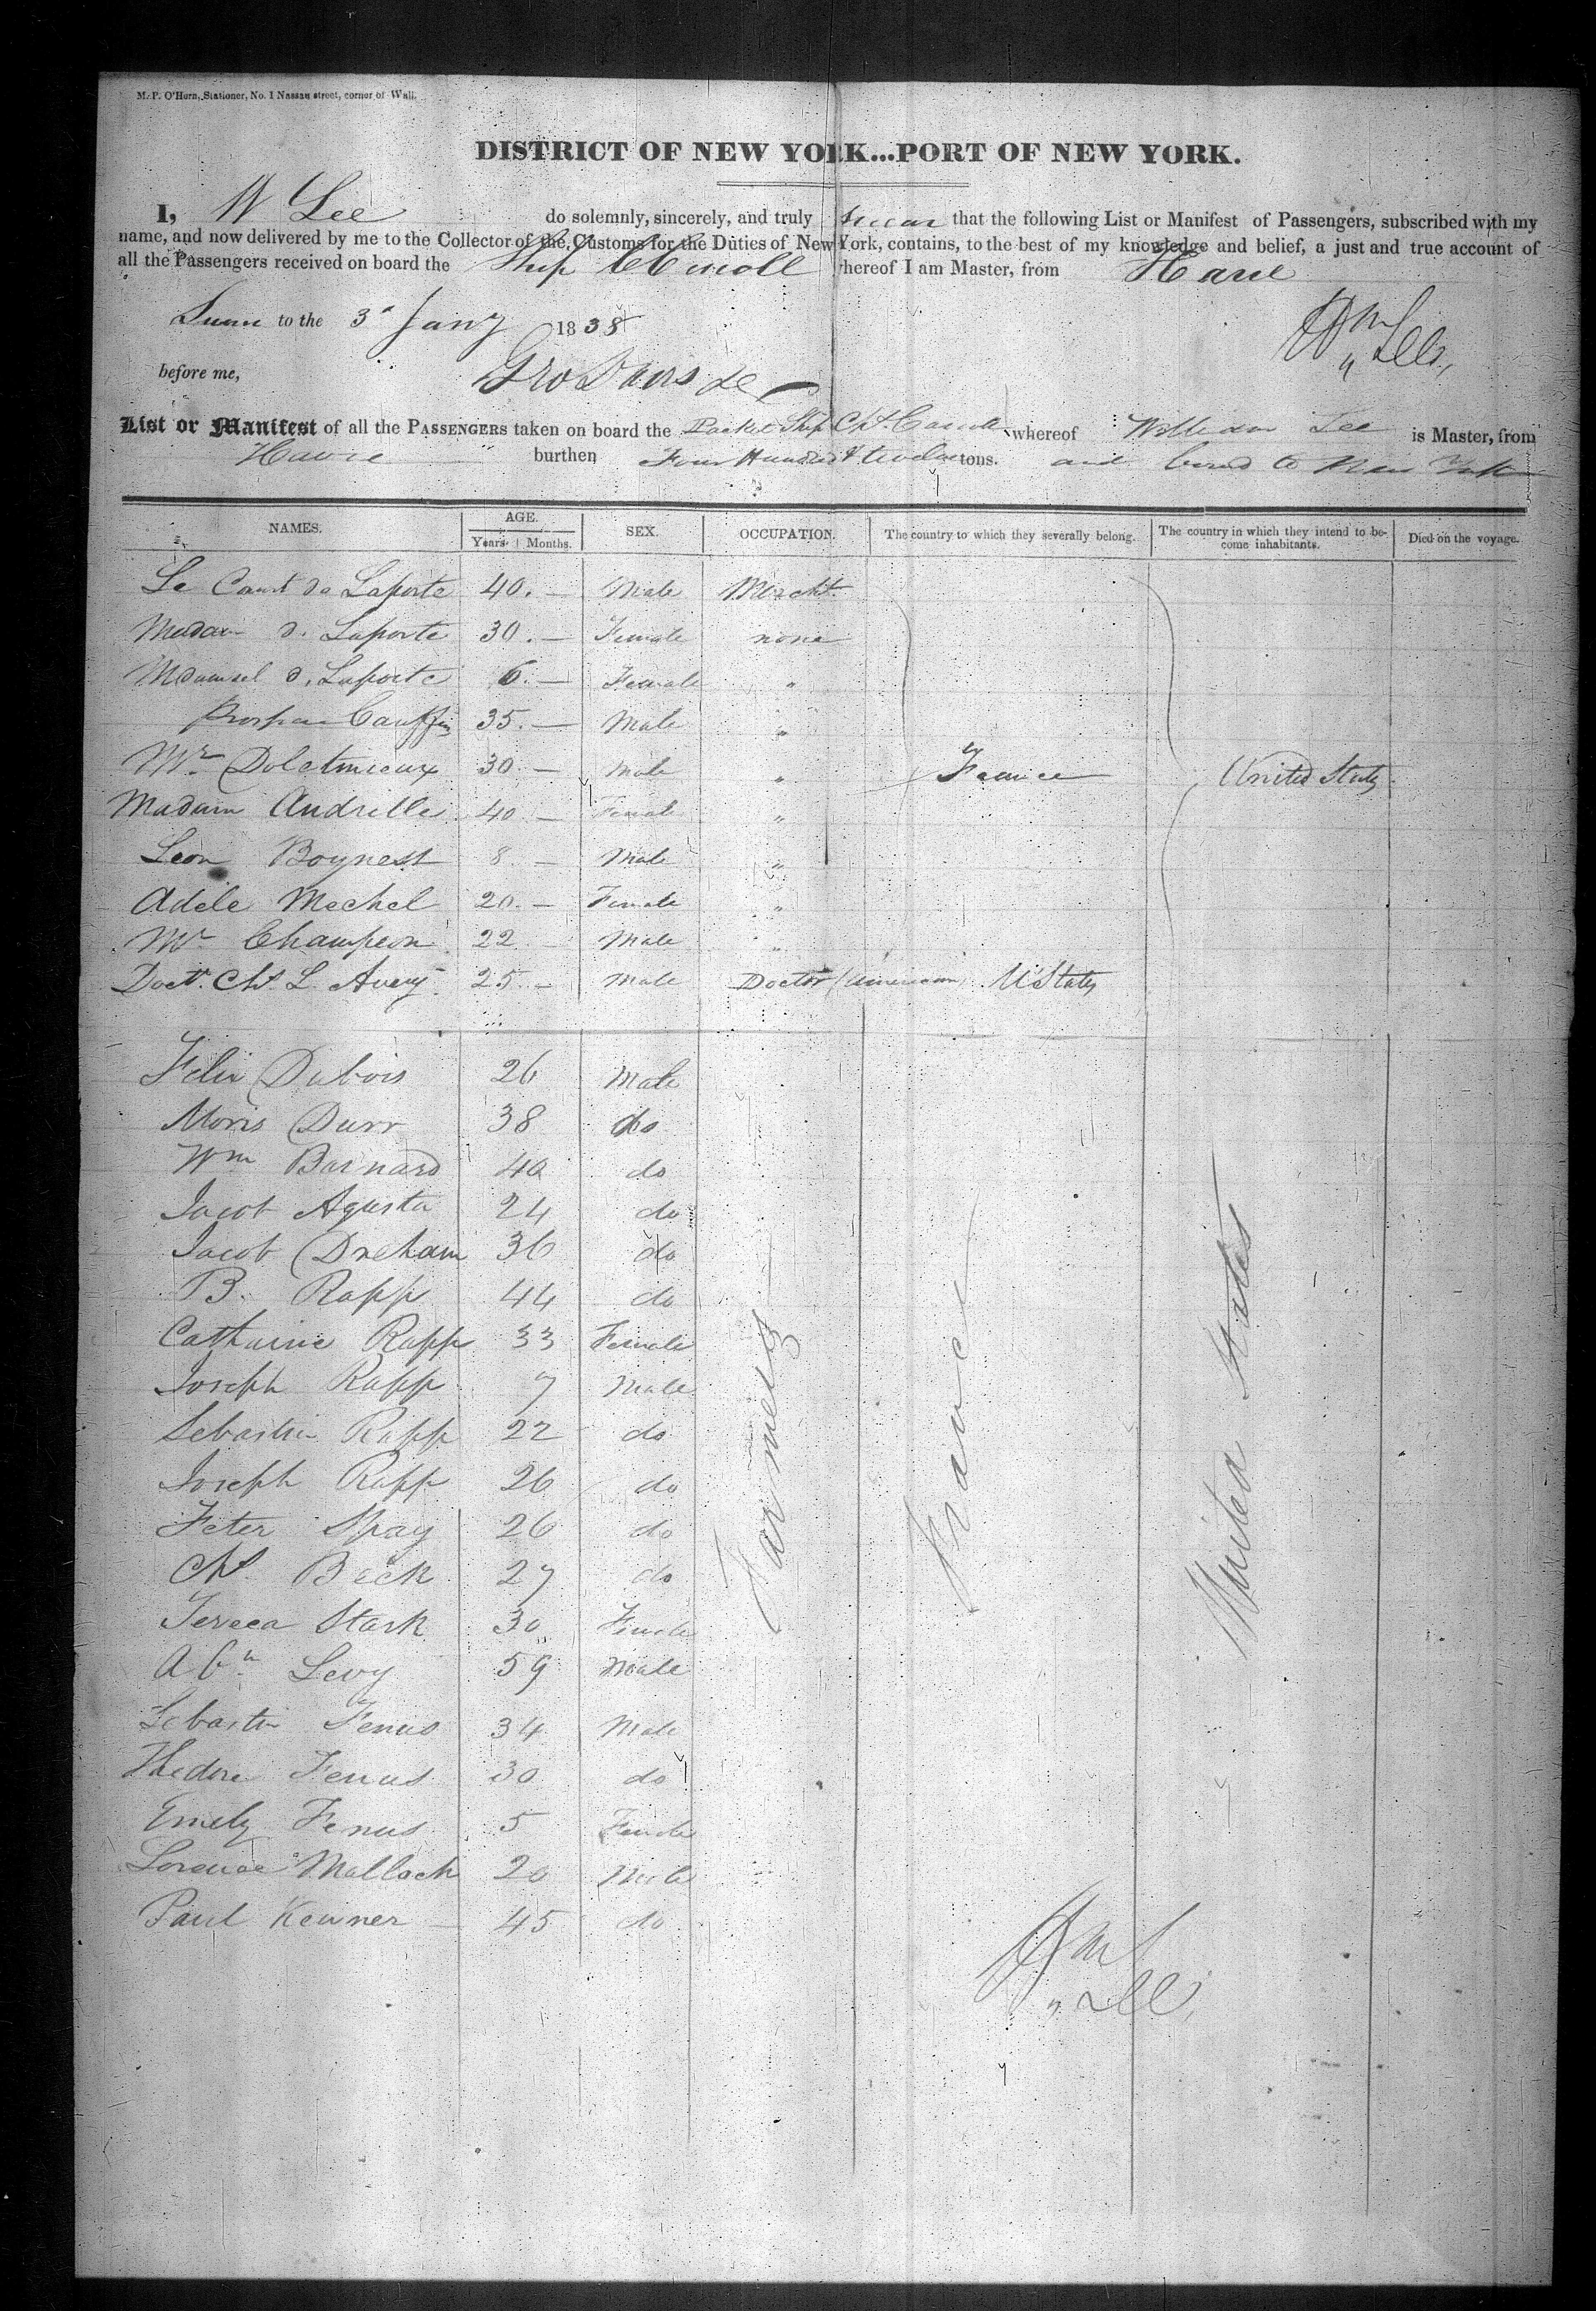 M. P. O'Hara, Stationer, No. 1 Nassau street, corner of Wall.
DISTRICT OF NEW YORK...PORT OF NEW YORK.
I, W Lee do solemnly, sincerely, and truly swear that the following List or Manifest of Passengers, subscribed with my
name, and now delivered by me to the Collector of the Customs for the Duties of New York, contains, to the best of my knowledge and belief, a just and true account of
all the Passengers received on board the Ship whereof I am Master, from Havre
to the 3d Jany 1838
Wm Lee,
before me,
List or Manifest of all the PASSENGERS taken on board the Packet Ship Chs. Carroll whereof William Lee is Master, from
Havre burthen Four Hundred & twelve tons. and bound to New York
NAMES. AGE. SEX. OCCUPATION. The country to which they severally belong. The country in which they intend to become inhabitants. Died on the voyage.
Years Months.
Le Count de Laporte 40. — Male Mercht.
Madam d. Laporte 30. — Female none
d. Laporte 6. — Female "
35. — Male "
Mr. 30 — Male " France United States
Madam Andrille 40 — Female "
Leon Boynest 8 — Male "
Adele Mechel 20. — Female "
Mr Champeon 22 — Male "
Doctr. Chs. L. Avery 25. — Male Doctor (American) U States
Felix Dubois 26 Male
Moris Durr 38 do
Wm Barnard 40 do
Jacob Agusta 24 do
Jacob Dreham 36 do
B. Rapp 44 do
Catharine Rapp 33 Female
Joseph Rapp 7 Male
Sebastin Rapp 22 do
Joseph Rapp 26 do
Peter Spay 26 do
Chs Beck 27 do
Tereca Stark 30 Female
Abm Levy 59 Male
Sebastin Fenus 34 Male
Thedore Fenus 30 do
Emely Fenus 5 Female
Lorence Mallack 20 Male
Paul Kewner 45 do
Farmers
France
United States
Wm Lee,